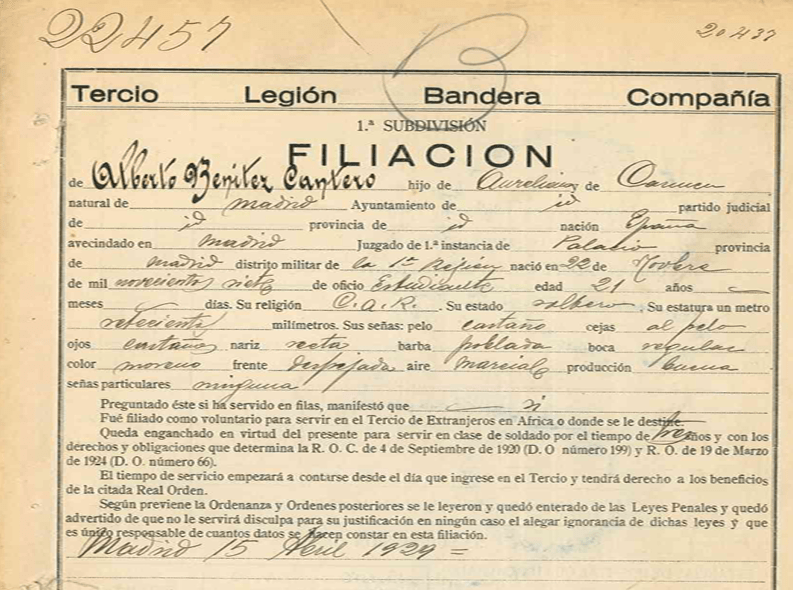 22457 20437
Tercio Legión Bandera Compañía
1.ª SUBDIVISIÓN
FILIACION
de Alberto Benitez Cantero hijo de Aureliano y de Carmen
natural de madrid Ayuntamiento de id partido judicial
de id provincia de id nación España
avecindado en madrid Juzgado de 1.ª instancia de Palacio provincia
de madrid distrito militar de la 1ª Región nació en 22 de
de mil novecientos siete de oficio Estudiante edad 21 años
meses días. Su religión C.A.R. Su estado soltero. Su estatura un metro
setecientos milímetros. Sus señas: pelo castaño cejas al pelo
ojos castaños nariz recta barba poblada boca regular
color moreno frente despejada aire marcial producción buena
señas particulares ninguna
Preguntado éste si ha servido en filas, manifestó que si
Fué filiado como voluntario para servir en el Tercio de Extranjeros en Africa o donde se le destine.
Queda enganchado en virtud del presente para servir en clase de soldado por el tiempo de tres años y con los
derechos y obligaciones que determina la R. O. C. de 4 de Septiembre de 1920 (D. O número 199) y R. O. de 19 de Marzo
de 1924 (D. O. número 66).
El tiempo de servicio empezará a contarse desde el día que ingrese en el Tercio y tendrá derecho a los beneficios
de la citada Real Orden.
Según previene la Ordenanza y Ordenes posteriores se le leyeron y quedó enterado de las Leyes Penales y quedó
advertido de que no le servirá disculpa para su justificación en ningún caso el alegar ignorancia de dichas leyes y que
es único responsable de cuantos datos se hacen constar en esta filiación.
Madrid 15 Abril 1929 =